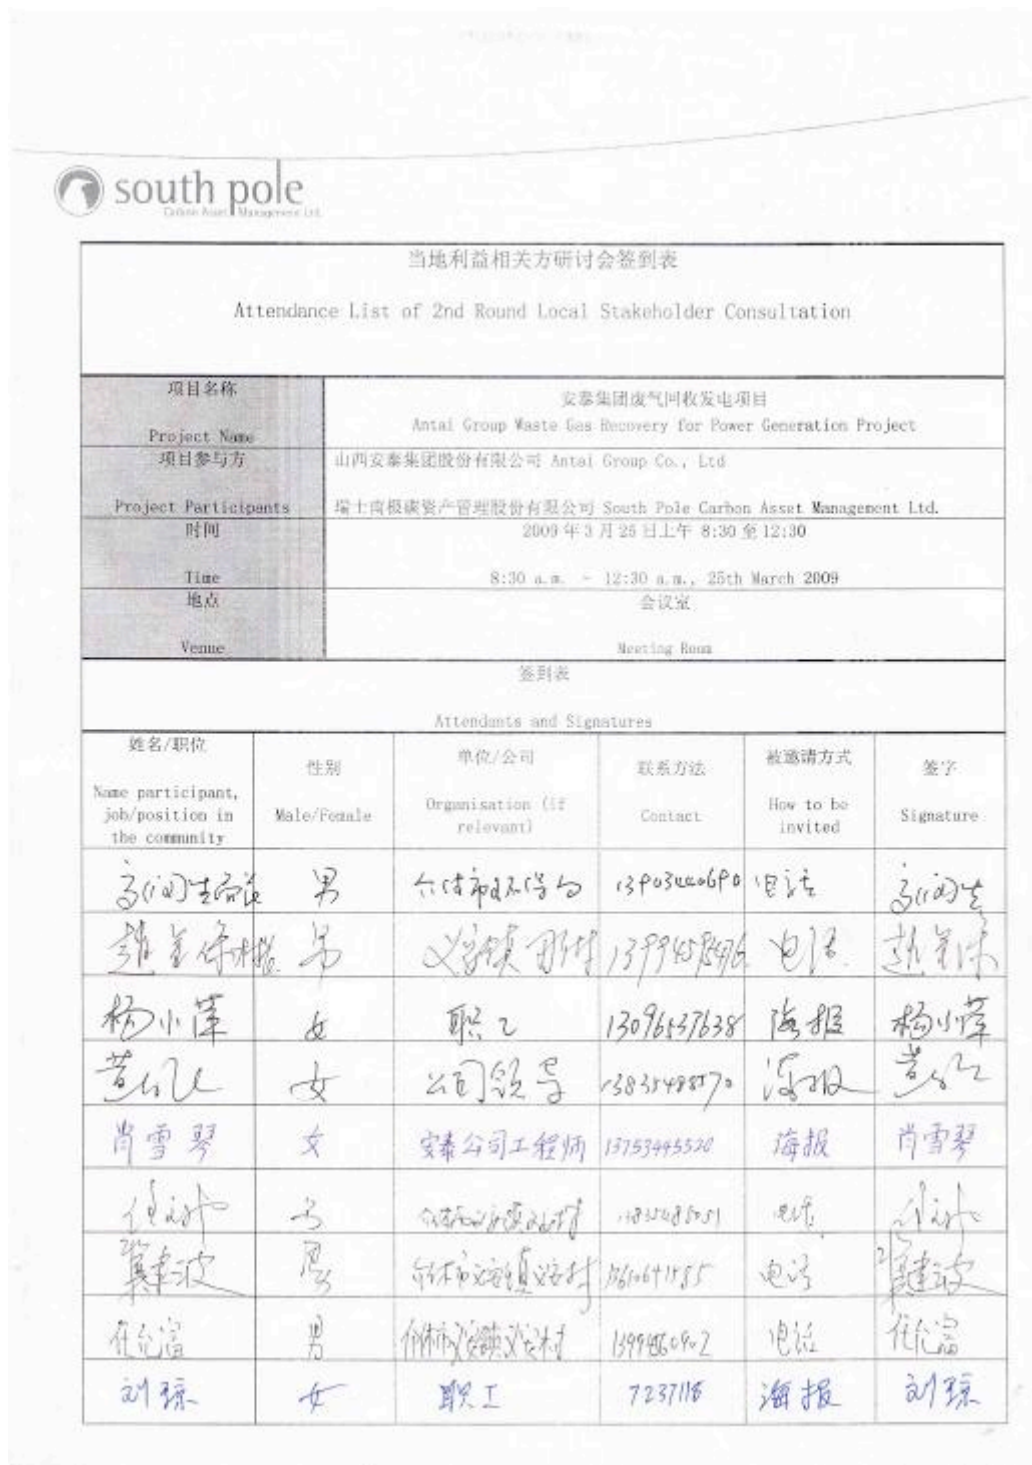 south pole
Carbon Asset Management Ltd.
当地利益相关方研讨会签到表
Attendance List of 2nd Round Local Stakeholder Consultation
项目名称
Project Name
安泰集团废气回收发电项目
Antai Group Waste Gas Recovery for Power Generation Project
项目参与方
Project Participants
山西安泰集团股份有限公司 Antai Group Co., Ltd
瑞士南极碳资产管理股份有限公司 South Pole Carbon Asset Management Ltd.
时间
Time
2009 年 3 月 25 日上午 8:30 至 12:30
8:30 a.m. - 12:30 a.m., 25th March 2009
地点
Venue
会议室
Meeting Room
签到表
Attendants and Signatures
姓名/职位
Name participant,
job/position in
the community
性别
Male/Female
单位/公司
Organisation (if
relevant)
联系方法
Contact
被邀请方式
How to be
invited
签字
Signature
男 电话
男 义安镇 电话
杨小萍 女 职工 13096537638 海报 杨小萍
女 公司领导 海报
肖雪琴 女 安泰公司工程师 13753445520 海报 肖雪琴
男 电话
冀建波 男 介休市义安镇义安村 电话 冀建波
任允富 男 介休市义安镇义安村 电话 任允富
刘琼 女 职工 7237118 海报 刘琼